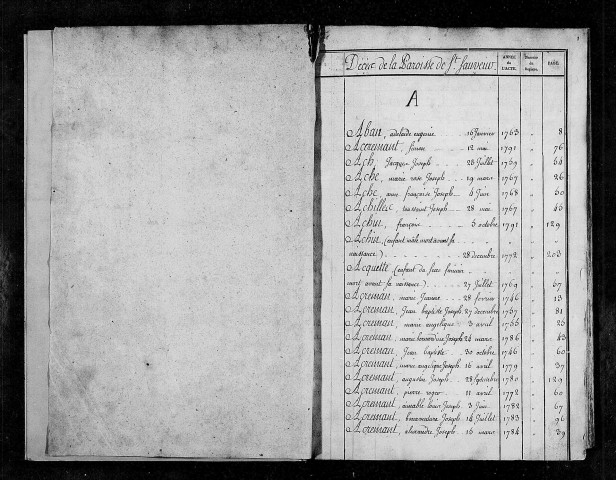 Décès de la Paroisse de St. Sauveur. ANNÉE de L'ACTE. Numéro du Registre. PAGE.
A
Aban, adelaide eugenie 16 Janvier 1763 " 8
Accremant, simon 12 mai 1791 " 76
Ach, Jacques Joseph 28 Juillet 1759 " 64
Ache, marie rose Joseph 19 mars 1767 " 26
Ache, anne françoise Joseph 4 Juin 1768 " 50
Achillé, toussaint Joseph 28 mai 1767 " 45
Achin, françoise 5 octobre 1791 " 129
Achin, (enfant mâle mort avant sa
naissance) 28 decembre 1772 " 203
Acquette, (enfant du sexe féminin
mort avant sa naissance) 27 Juillet 1769 " 57
Acreman, marie Jeanne 28 fevrier 1746 " 13
Acreman, Jean baptiste Joseph 27 decembre 1757 " 81
Acreman, marie angelique 3 avril 1755 " 25
Acreman, marie bernardine Joseph 24 mars 1786 " 43
Acreman, Jean baptiste 30 octobre 1746 " 60
Acremant, marie angelique Joseph 16 avril 1779 " 37
Acremant, augustin Joseph 28 Septembre 1780 " 129
Acremant, pierre roger 11 avril 1772 " 60
Acremant, aimable louis Joseph 3 Juin 1782 " 67
Acremant, bonaventure Joseph 14 Juillet 1783 " 96
Acremant, alexandre Joseph 15 mars 1784 " 39